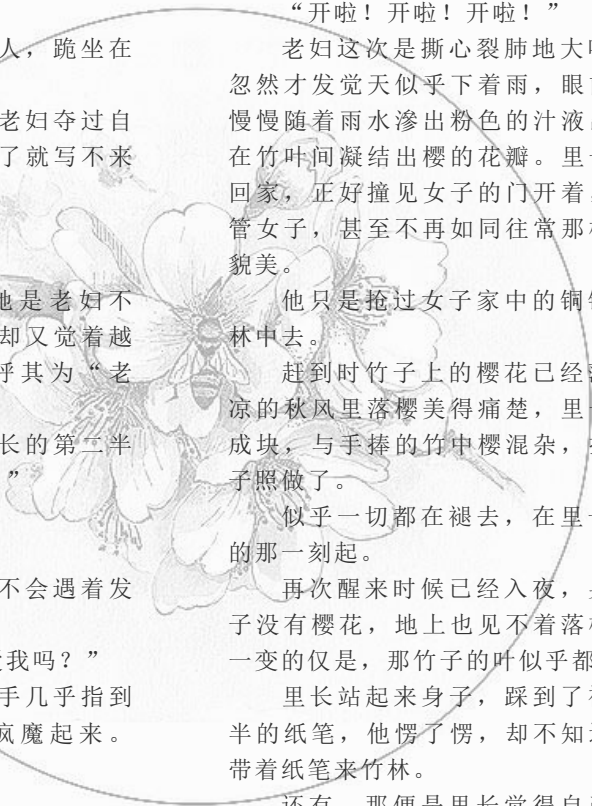 人，跪坐在
老妇夺过自
了就写不来
她是老妇不
却又觉着越
呼其为“老
长的第二半
”
不会遇着发
我吗？”
手几乎指到
疯魔起来。
“开啦！开啦！开啦！”
老妇这次是撕心裂肺地大
忽然才发觉天似乎下着雨，眼
慢慢随着雨水渗出粉色的汁液
在竹叶间凝结出樱的花瓣。里
回家，正好撞见女子的门开着
管女子，甚至不再如同往常那
貌美。
他只是抢过女子家中的铜
林中去。
赶到时竹子上的樱花已经
凉的秋风里落樱美得痛楚，里
成块，与手捧的竹中樱混杂，
子照做了。
似乎一切都在褪去，在里
的那一刻起。
再次醒来时候已经入夜，
子没有樱花，地上也见不着落
一变的仅是，那竹子的叶似乎都
里长站起来身子，踩到了
半的纸笔，他愣了愣，却不知
带着纸笔来竹林。
还有，那便是里长觉得自